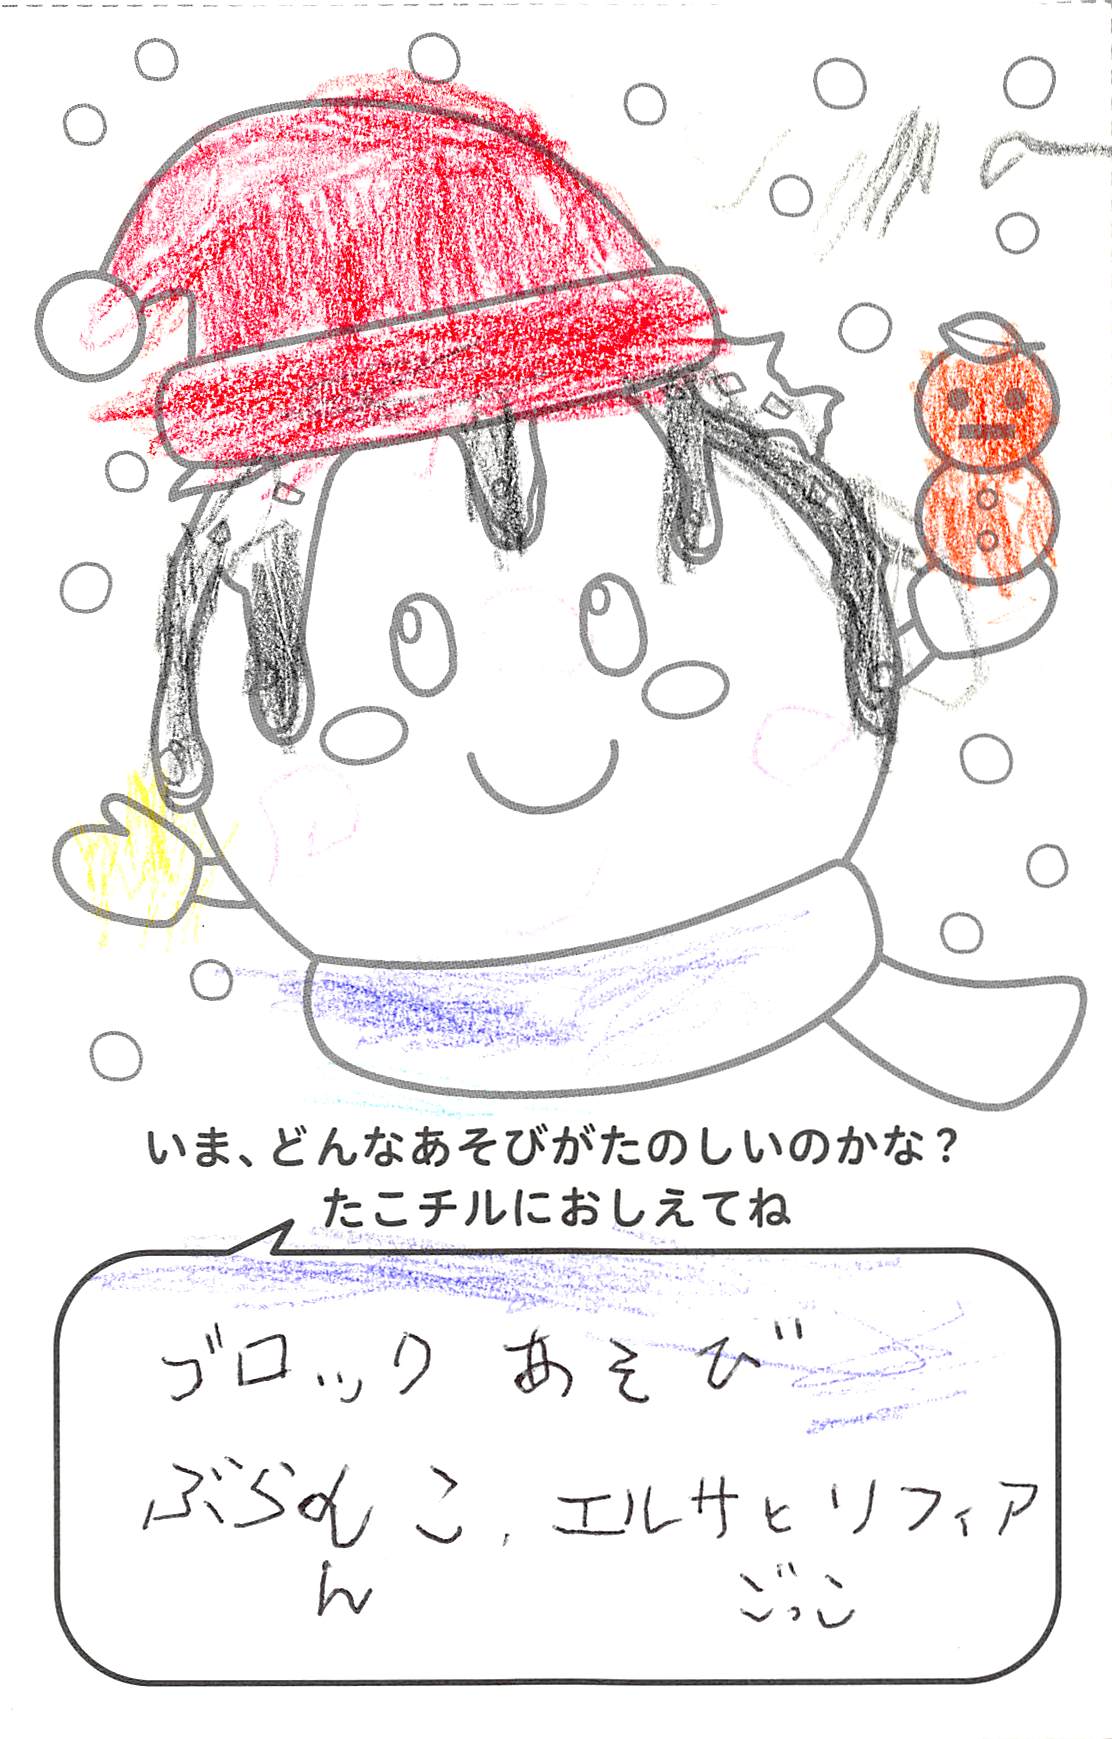 いま、どんなあそびがたのしいのかな？
たこチルにおしえてね
ブロック あそび
ぶらんこ、エルサとソフィア
ん
ごっこ